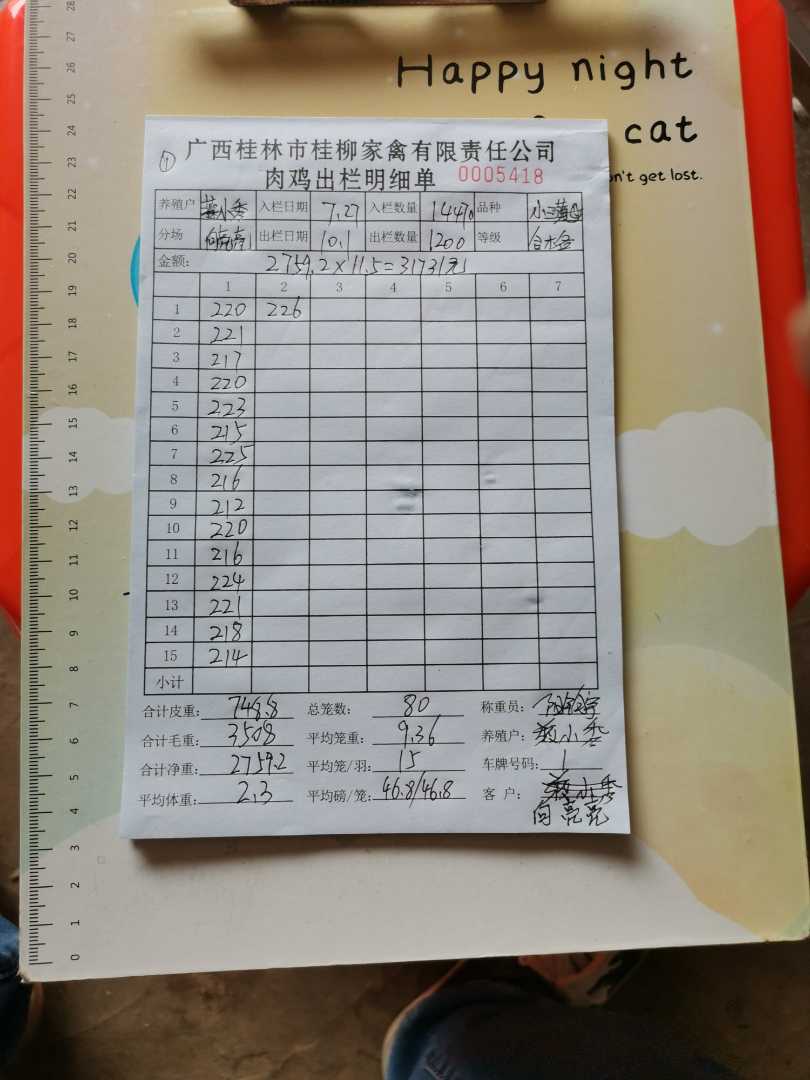 Happy night
cat
n't get lost.
① 广西桂林市桂柳家禽有限责任公司
肉鸡出栏明细单 0005418
养殖户 小秀 入栏日期 7.27 入栏数量 14470 品种 小三黄
分场 向亮亮 出栏日期 10.1 出栏数量 1200 等级 合格
金额: 2759.2×11.5=31731元
1 2 3 4 5 6 7
1 220 226
2 221
3 217
4 220
5 223
6 215
7 225
8 216
9 212
10 220
11 216
12 224
13 221
14 218
15 214
小计
合计皮重: 748.8 总笼数: 80 称重员:
合计毛重: 3508 平均笼重: 9.36 养殖户: 小秀
合计净重: 2759.2 平均笼/羽: 15 车牌号码: 1
平均体重: 2.3 平均磅/笼: 46.8/46.8 客户:
向亮亮
0 1 2 3 4 5 6 7 8 9 10 11 12 13 14 15 16 17 18 19 20 21 22 23 24 25 26 27 28